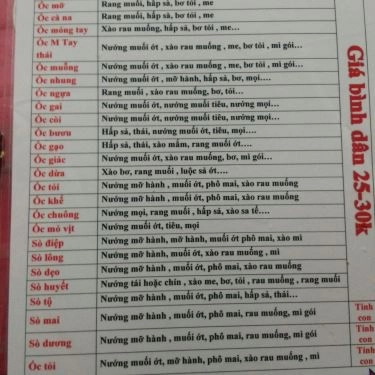 Ốc mỡ Rang muối, hấp sả, bơ tỏi , me
Ốc cà na Rang muối, hấp sả, bơ tỏi , me
Ốc móng tay Xào rau muống, hấp sả, bơ tỏi , me…
Ốc M Tay thái Nướng muối ớt , xào rau muống , me, bơ tỏi , mì gói…
Ốc muỗng Nướng muối ớt , xào rau muống , me, bơ tỏi , mì gói…
Ốc nhung Nướng muối ớt , mỡ hành, hấp sả, bơ, mọi….
Ốc ngựa Rang muối , xào rau muống, bơ, tỏi…
Ốc gai Nướng muối ớt, nướng muối tiêu, nướng mọi…
Ốc còi Nướng muối ớt, nướng muối tiêu, nướng mọi….
Ốc bươu Hấp sả, thái, nướng muối ớt, tiêu, mọi…
Ốc gạo Hấp sả, thái, xào mắm, rang muối ớt….
Ốc giác Nướng muối ớt, xào rau muống, bơ, mì gói…
Ốc dừa Xào bơ, rang muối , luộc sả ớt….
Ốc tỏi Nướng mỡ hành , muối ớt, phô mai, xào rau muống
Ốc khế Nướng mỡ hành , muối ớt, phô mai, xào rau muống
Ốc chuông Nướng mọi, rang muối , hấp sả, xào sa tế….
Ốc mỏ vịt Nướng muối ớt, tiêu, mọi
Sò điệp Nướng mỡ hành, mỡ hành, muối ớt phô mai, xào mì
Sò lông Nướng mỡ hành, muối ớt, xào rau muống , mì
Sò dẹo Nướng mỡ hành , muối ớt, phô mai, xào rau muống
Sò huyết Nướng tái hoặc chín , xào me, bơ, tỏi , rau muống , rang muối
Sò tộ Nướng mỡ hành , muối ớt, phô mai, hấp sả, thái…
Sò mai Nướng mỡ hành , muối ớt, phô mai, xào rau muống, mì gói Tính con
Sò dương Nướng mỡ hành , muối ớt, phô mai, xào rau muống, mì gói Tính con
Ốc tỏi Nướng muối ớt, mỡ hành, phô mai, xào rau muống , mì
Giá bình dân 25-30k